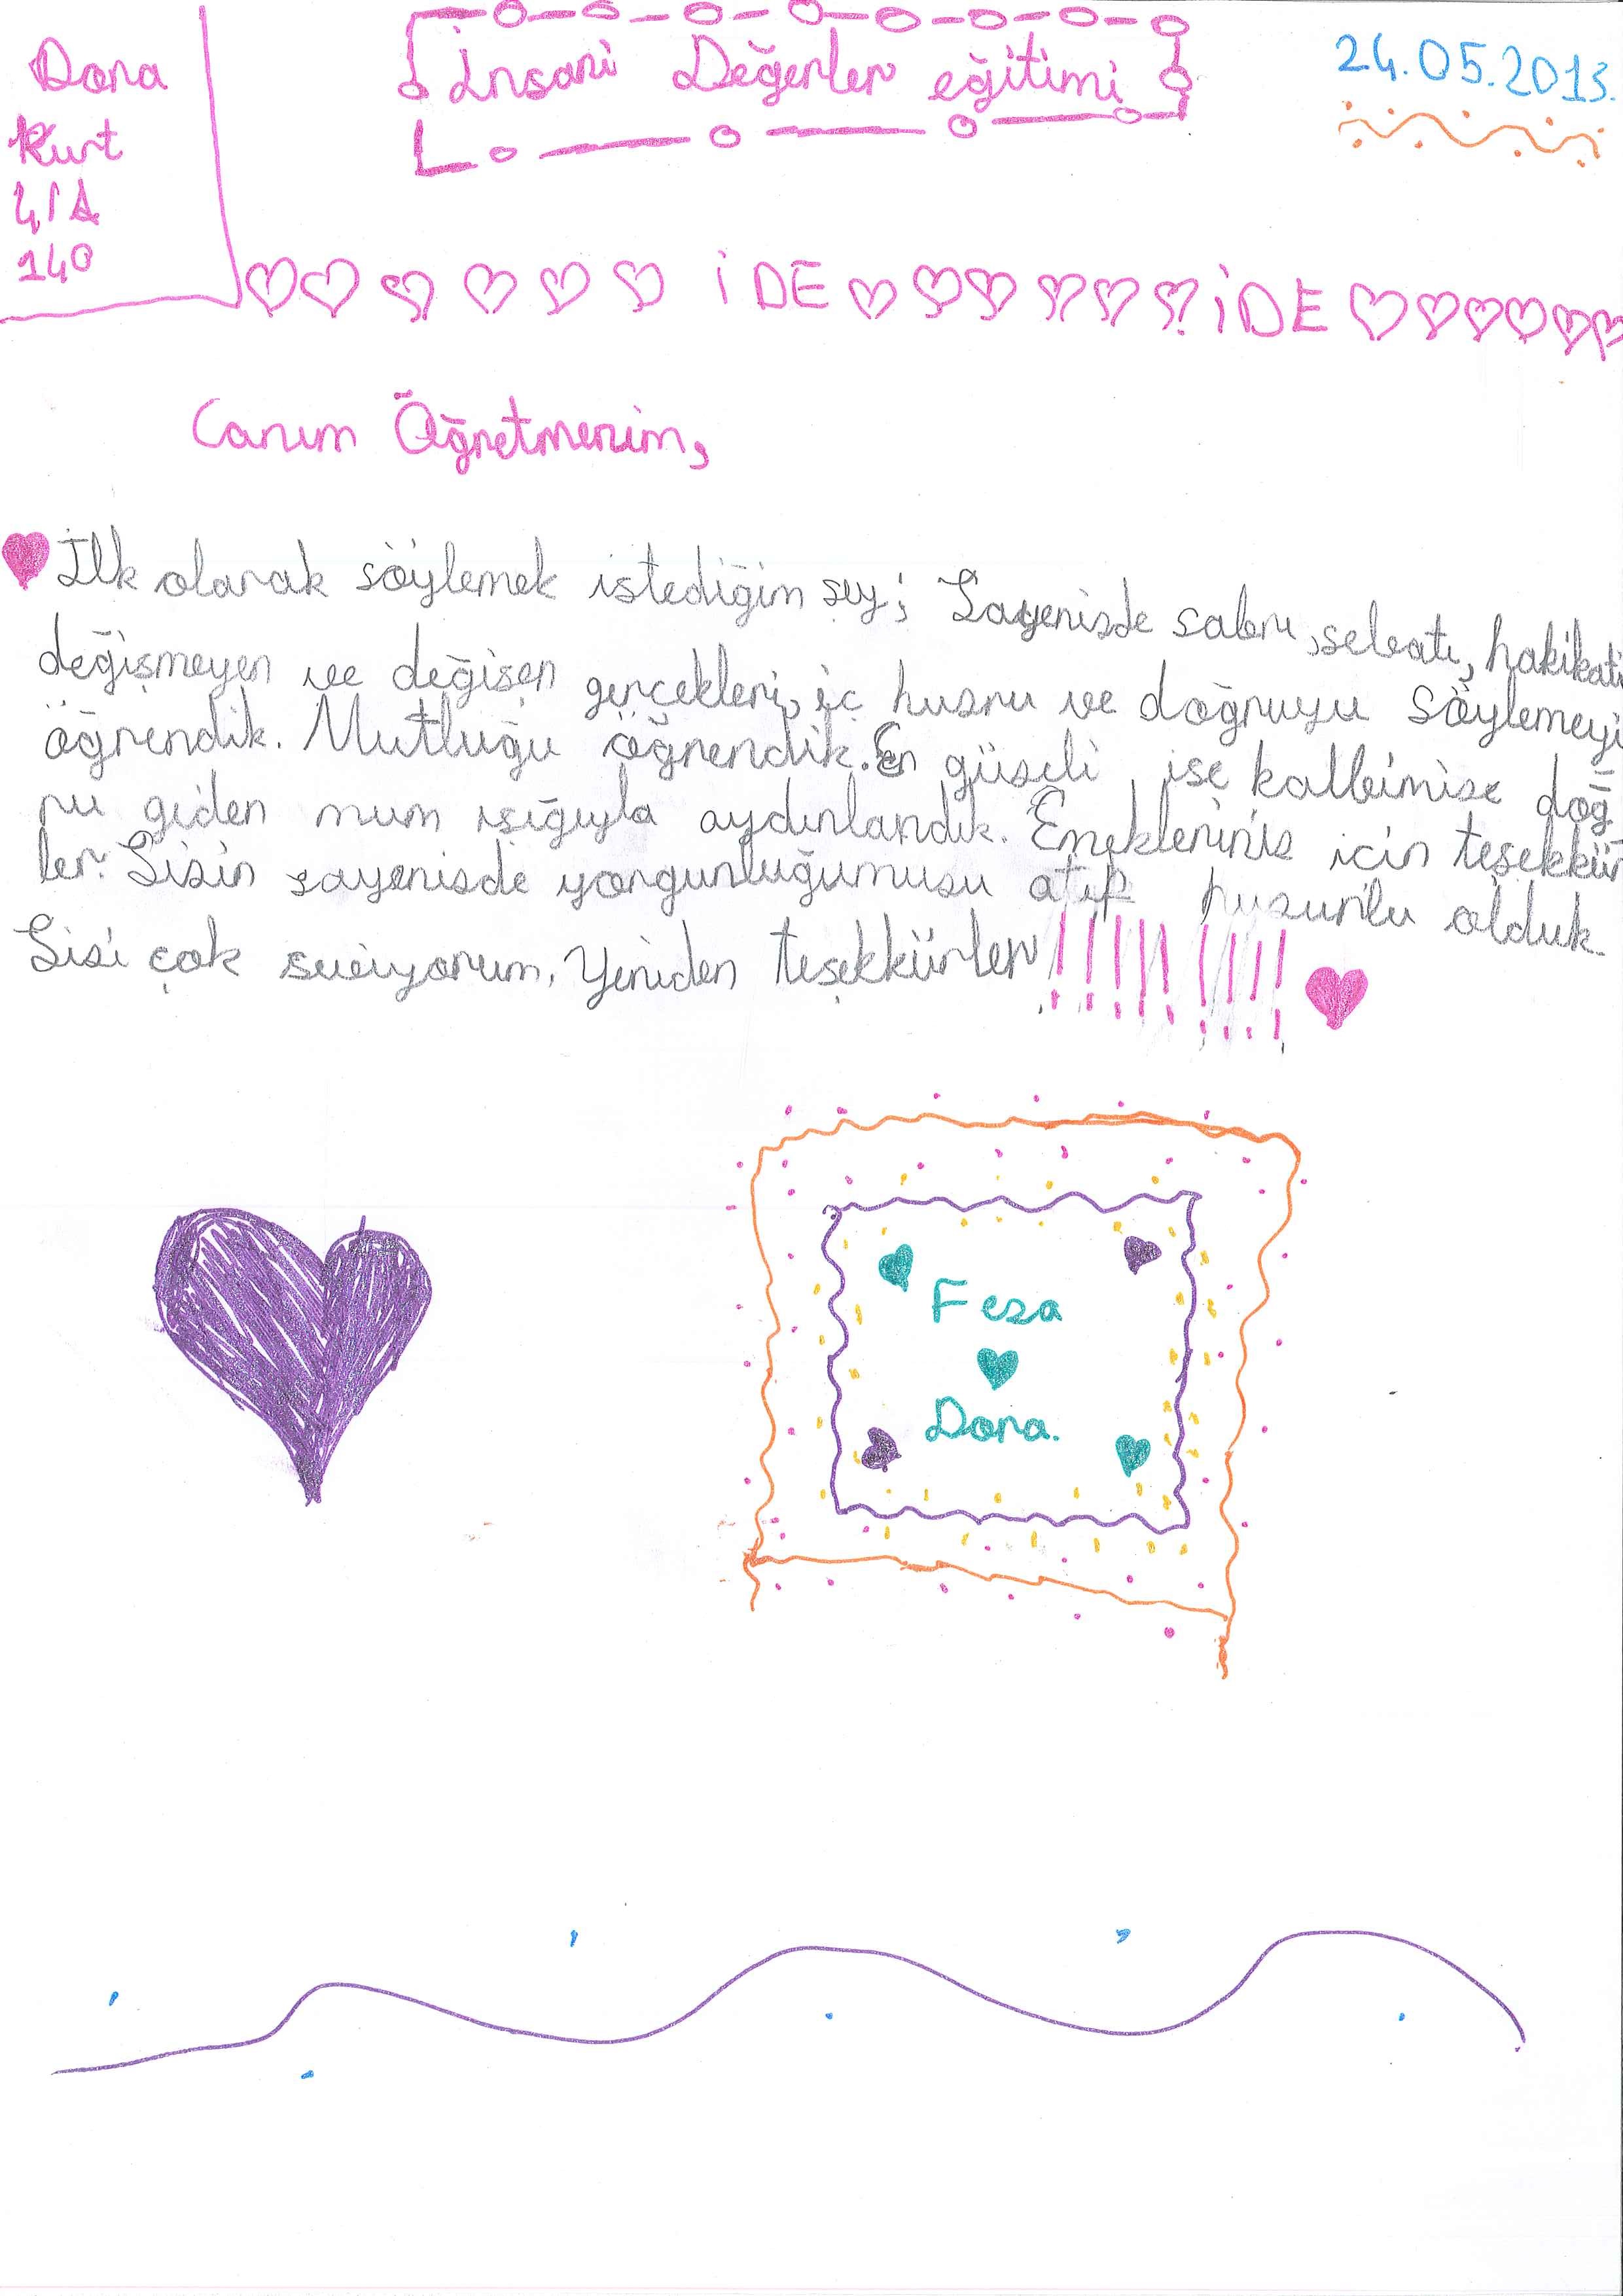 Dora
Kurt
4/A
140
İnsani Değerler eğitimi
24.05.2013.
İDE İDE
Canım Öğretmenim,
İlk olarak söylemek istediğim şey; Sayenizde sabrı, sebatı, hakikati
değişmeyen ve değişen gerçekleri, iç huzru ve doğruyu söylemeyi
öğrendik. Mutluğu öğrendik. En güzeli ise kalbimize doğ
ru giden mum ışığıyla aydınlandık. Emekleriniz için teşekkür
ler. Sizin sayenizde yorgunluğumuzu atıp huzurlu olduk.
Sizi çok seviyorum. Yeniden teşekkürler!!!!!!!!!
Feza
Dora.